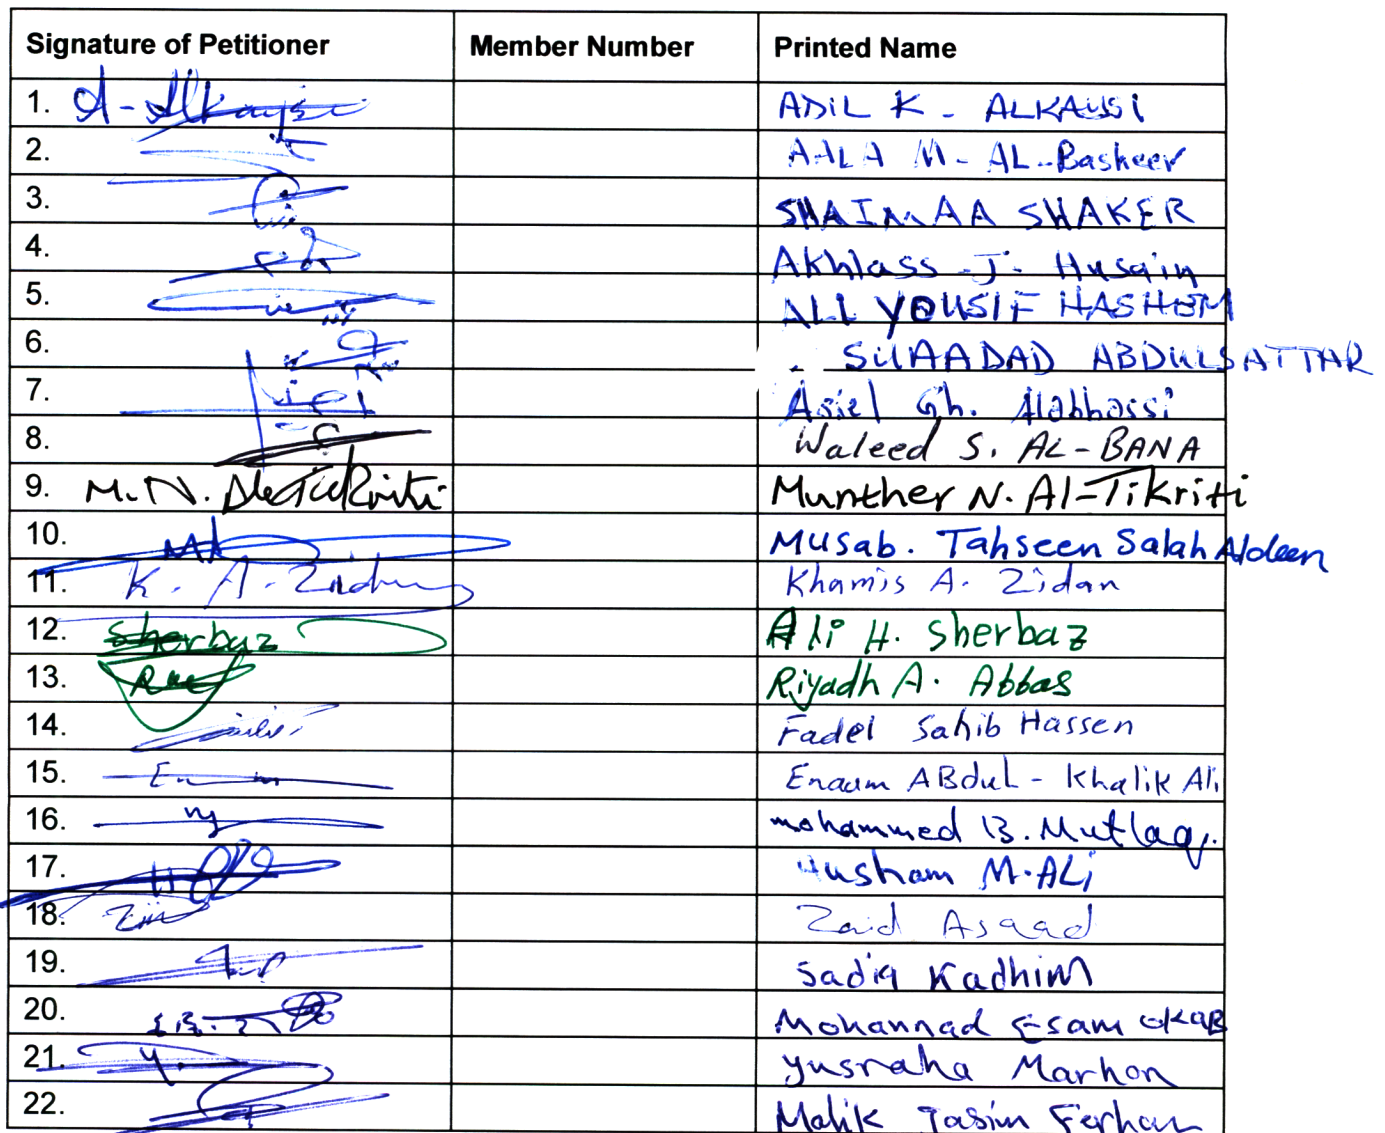 Signature of Petitioner Member Number Printed Name
1. A-Alkaysi ADIL K - ALKAYSI
2. AALA M- AL-Basheer
3. SHAIMAA SHAKER
4. Akhlass -J- Husain
5. ALI YOUSIF HASHEM
6. SUAADAD ABDULSATTAR
7. Asiel Gh.
8. Waleed S. AL-BANA
9. M.N. Munther N. Al-Tikriti
10. Musab. Tahseen Salah Aldeen
11. K. A. Zidan Khamis A. Zidan
12. Sherbaz Ali H. Sherbaz
13. Riyadh A. Abbas
14. Fadel Sahib Hassen
15. Enaam ABdul - Khalik Ali
16. mohammed B. Mutlaq.
17. Husham M.ALi
18. Zaid Asaad
19. Sadiq Kadhim
20. Mohannad Esam OKAB
21. Y. yusraha Marhon
22. Malik Jasim Ferhan